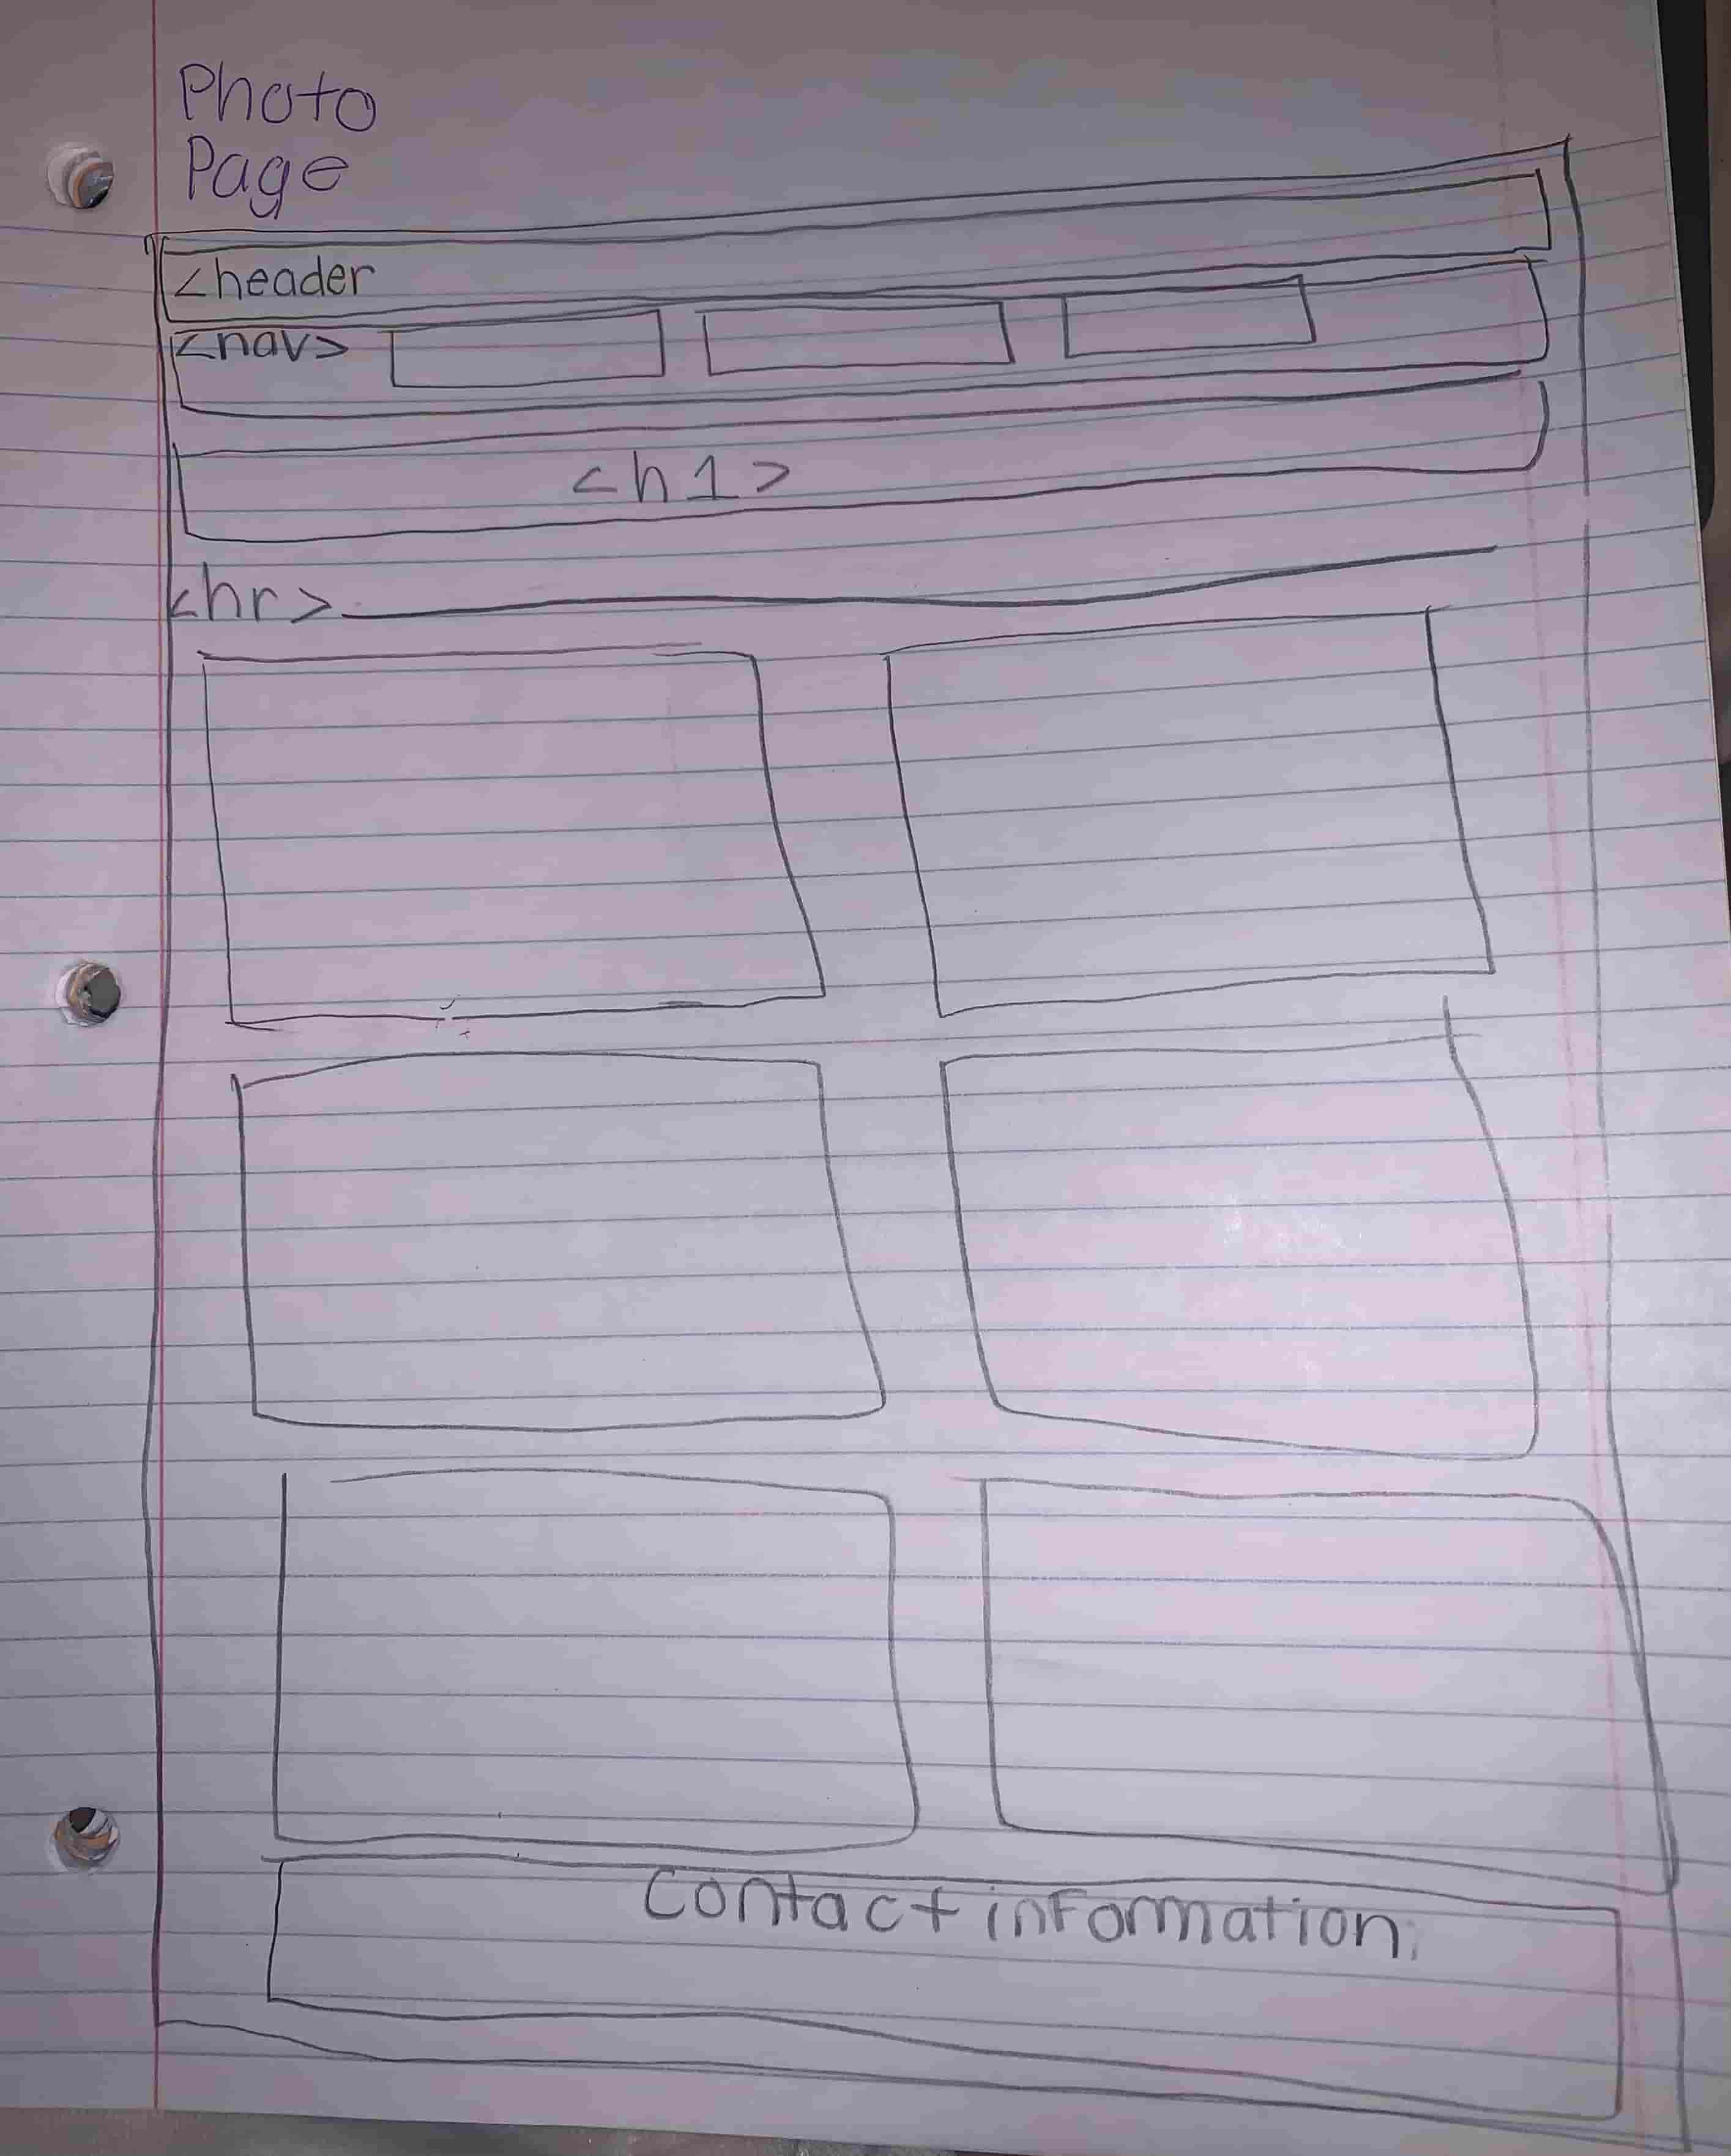 Photo
Page
<header
<nav>
<h1>
<hr>
Contact information